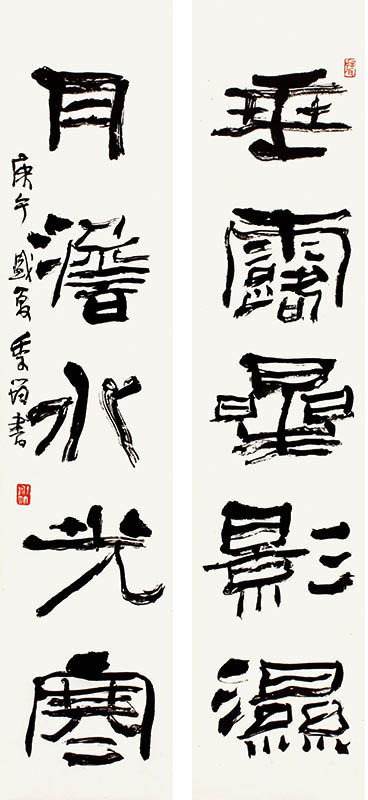 垂露曐影濕
月澹水光寒
庚午盛夏季書